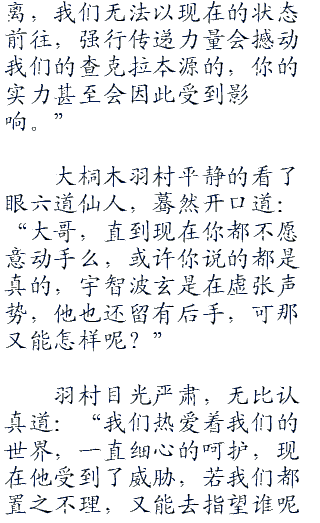 离，我们无法以现在的状态
前往，强行传递力量会撼动
我们的查克拉本源的，你的
实力甚至会因此受到影
响。”
大桐木羽村平静的看了
眼六道仙人，蓦然开口道：
“大哥，直到现在你都不愿
意动手么，或许你说的都是
真的，宇智波玄是在虚张声
势，他也还留有后手，可那
又能怎样呢？”
羽村目光严肃，无比认
真道：“我们热爱着我们的
世界，一直细心的呵护，现
在他受到了威胁，若我们都
置之不理，又能去指望谁呢